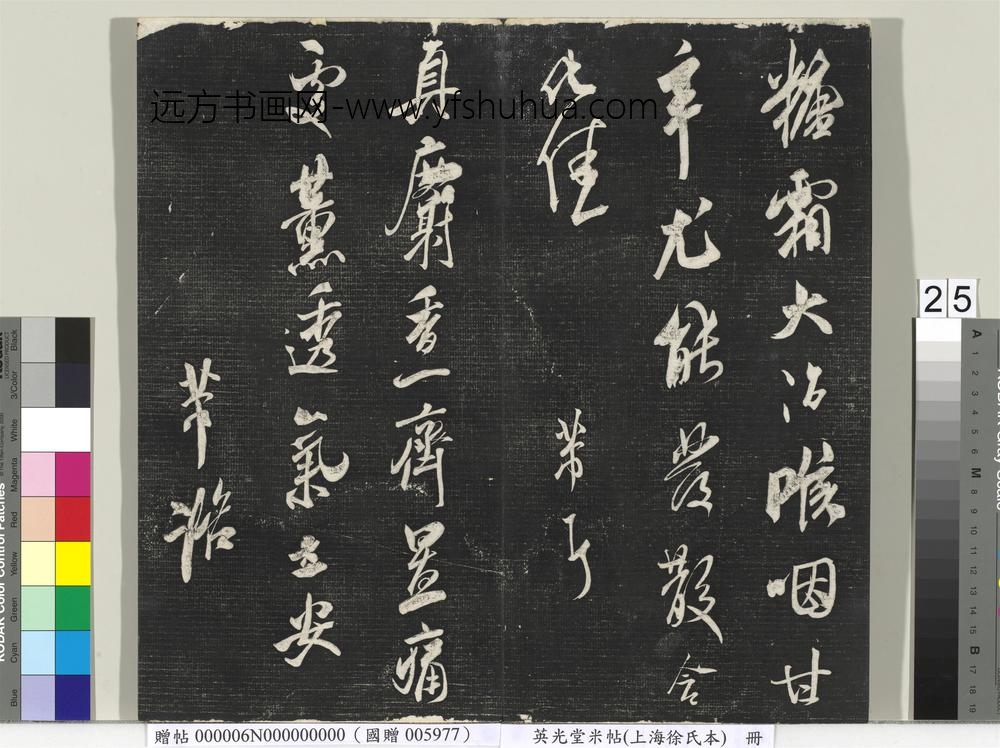 糖霜大治喉咽甘
辛尤能發散含
化佳
芾
真麝香一臍置痛
處薰透氣立安
芾
远方书画网-www.yfshuhua.com
25
贈帖 000006N000000000（國贈 005977）
英光堂米帖(上海徐氏本) 冊
KODAK Color Control Patches
Blue
Cyan
Green
Yellow
Red
Magenta
White
3/Color
Black
A
1
2
3
4
5
6
M
8
9
10
11
12
13
14
15
B
17
18
19